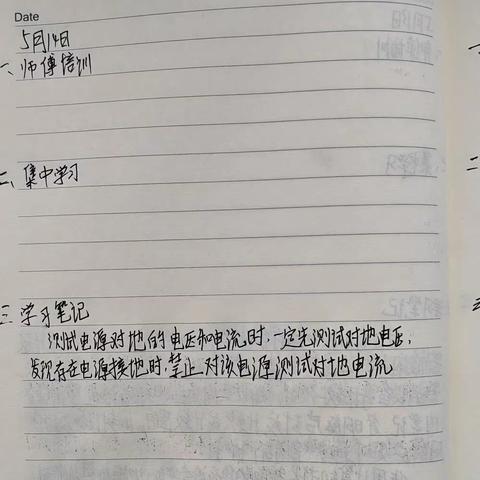 Date
5月14日
一、师傅培训
二、集中学习
三 学习笔记
测试电源对地的电压和电流时,一定先测试对地电压,
发现存在电源接地时,禁止对该电源测试对地电流